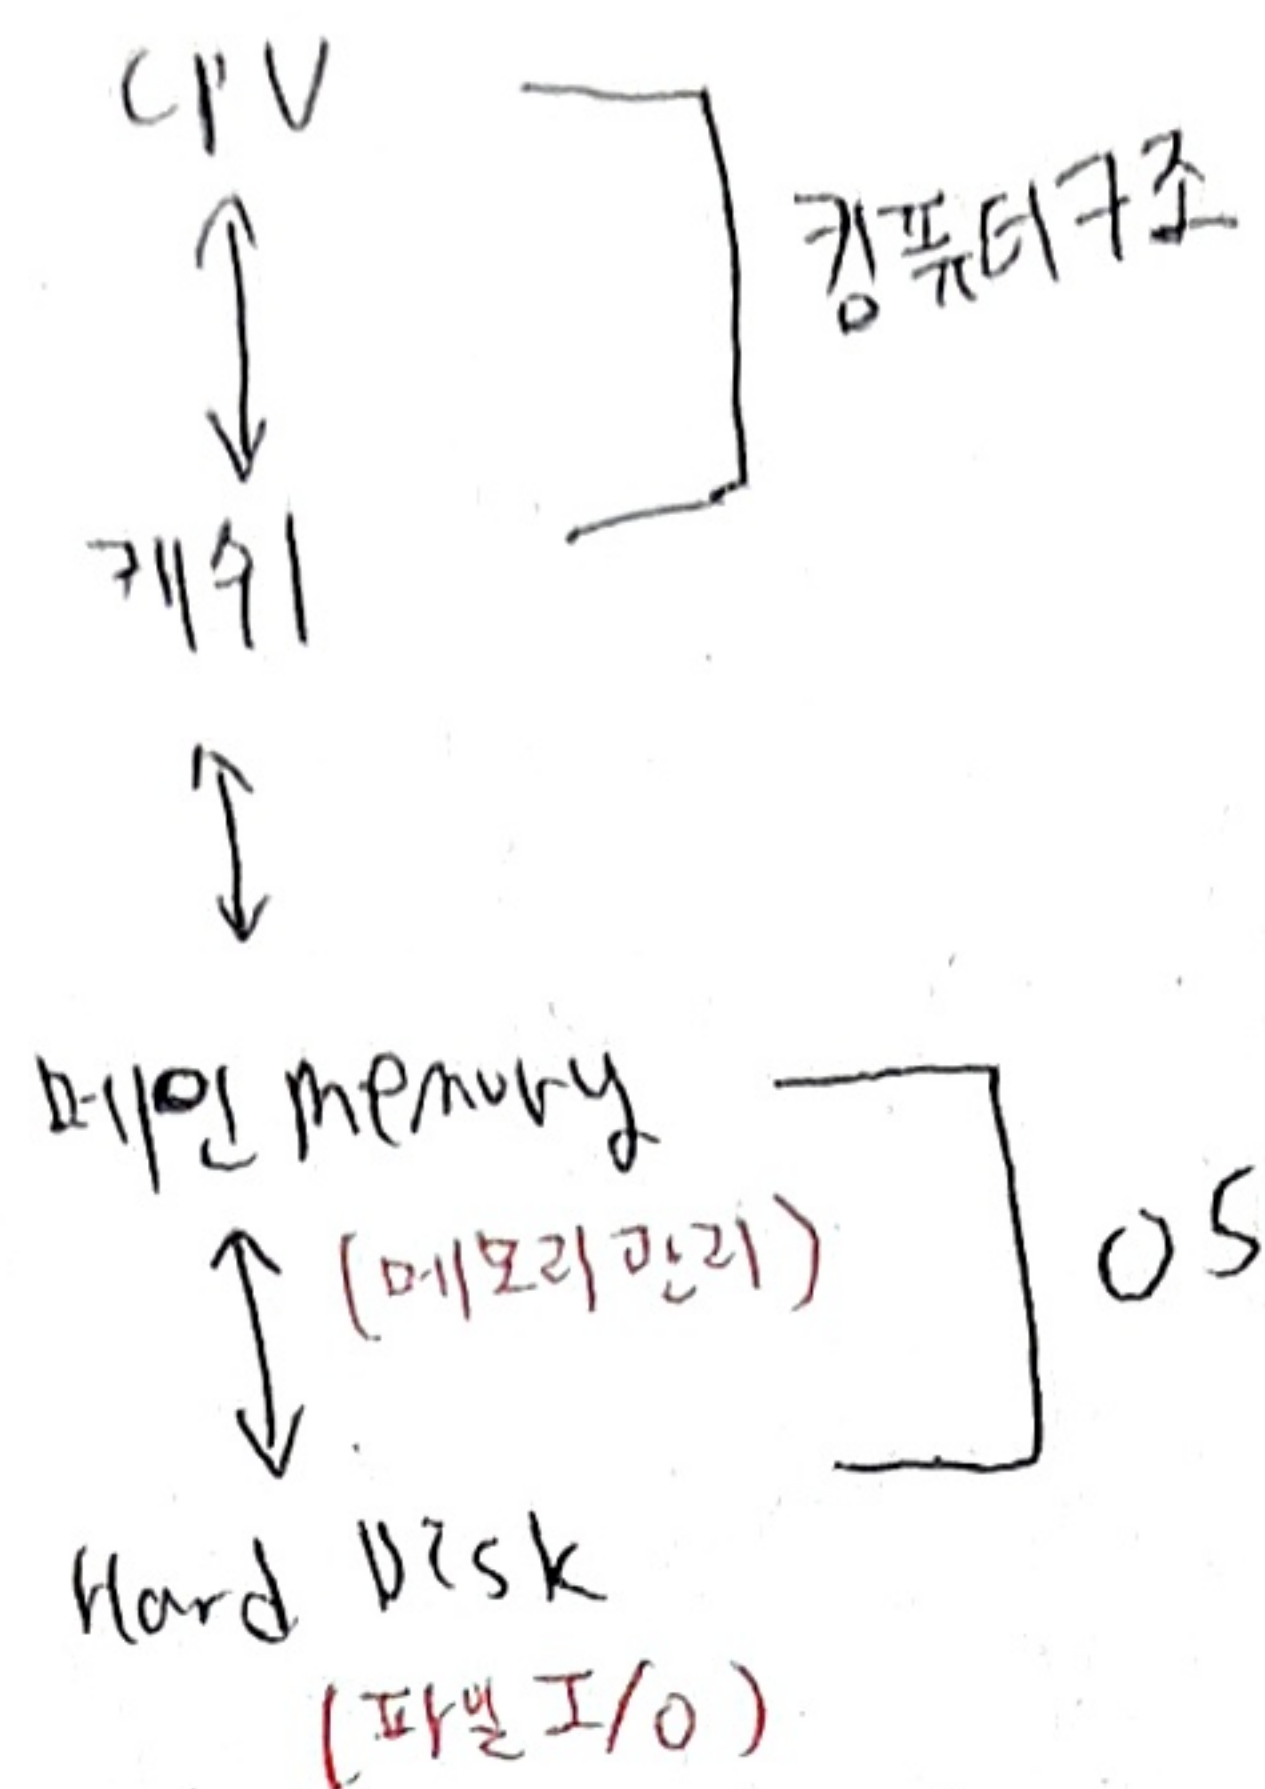 CPU
컴퓨터구조
캐쉬
메인 memory
(메모리 관리)
OS
Hard Disk
(파일 I/O)